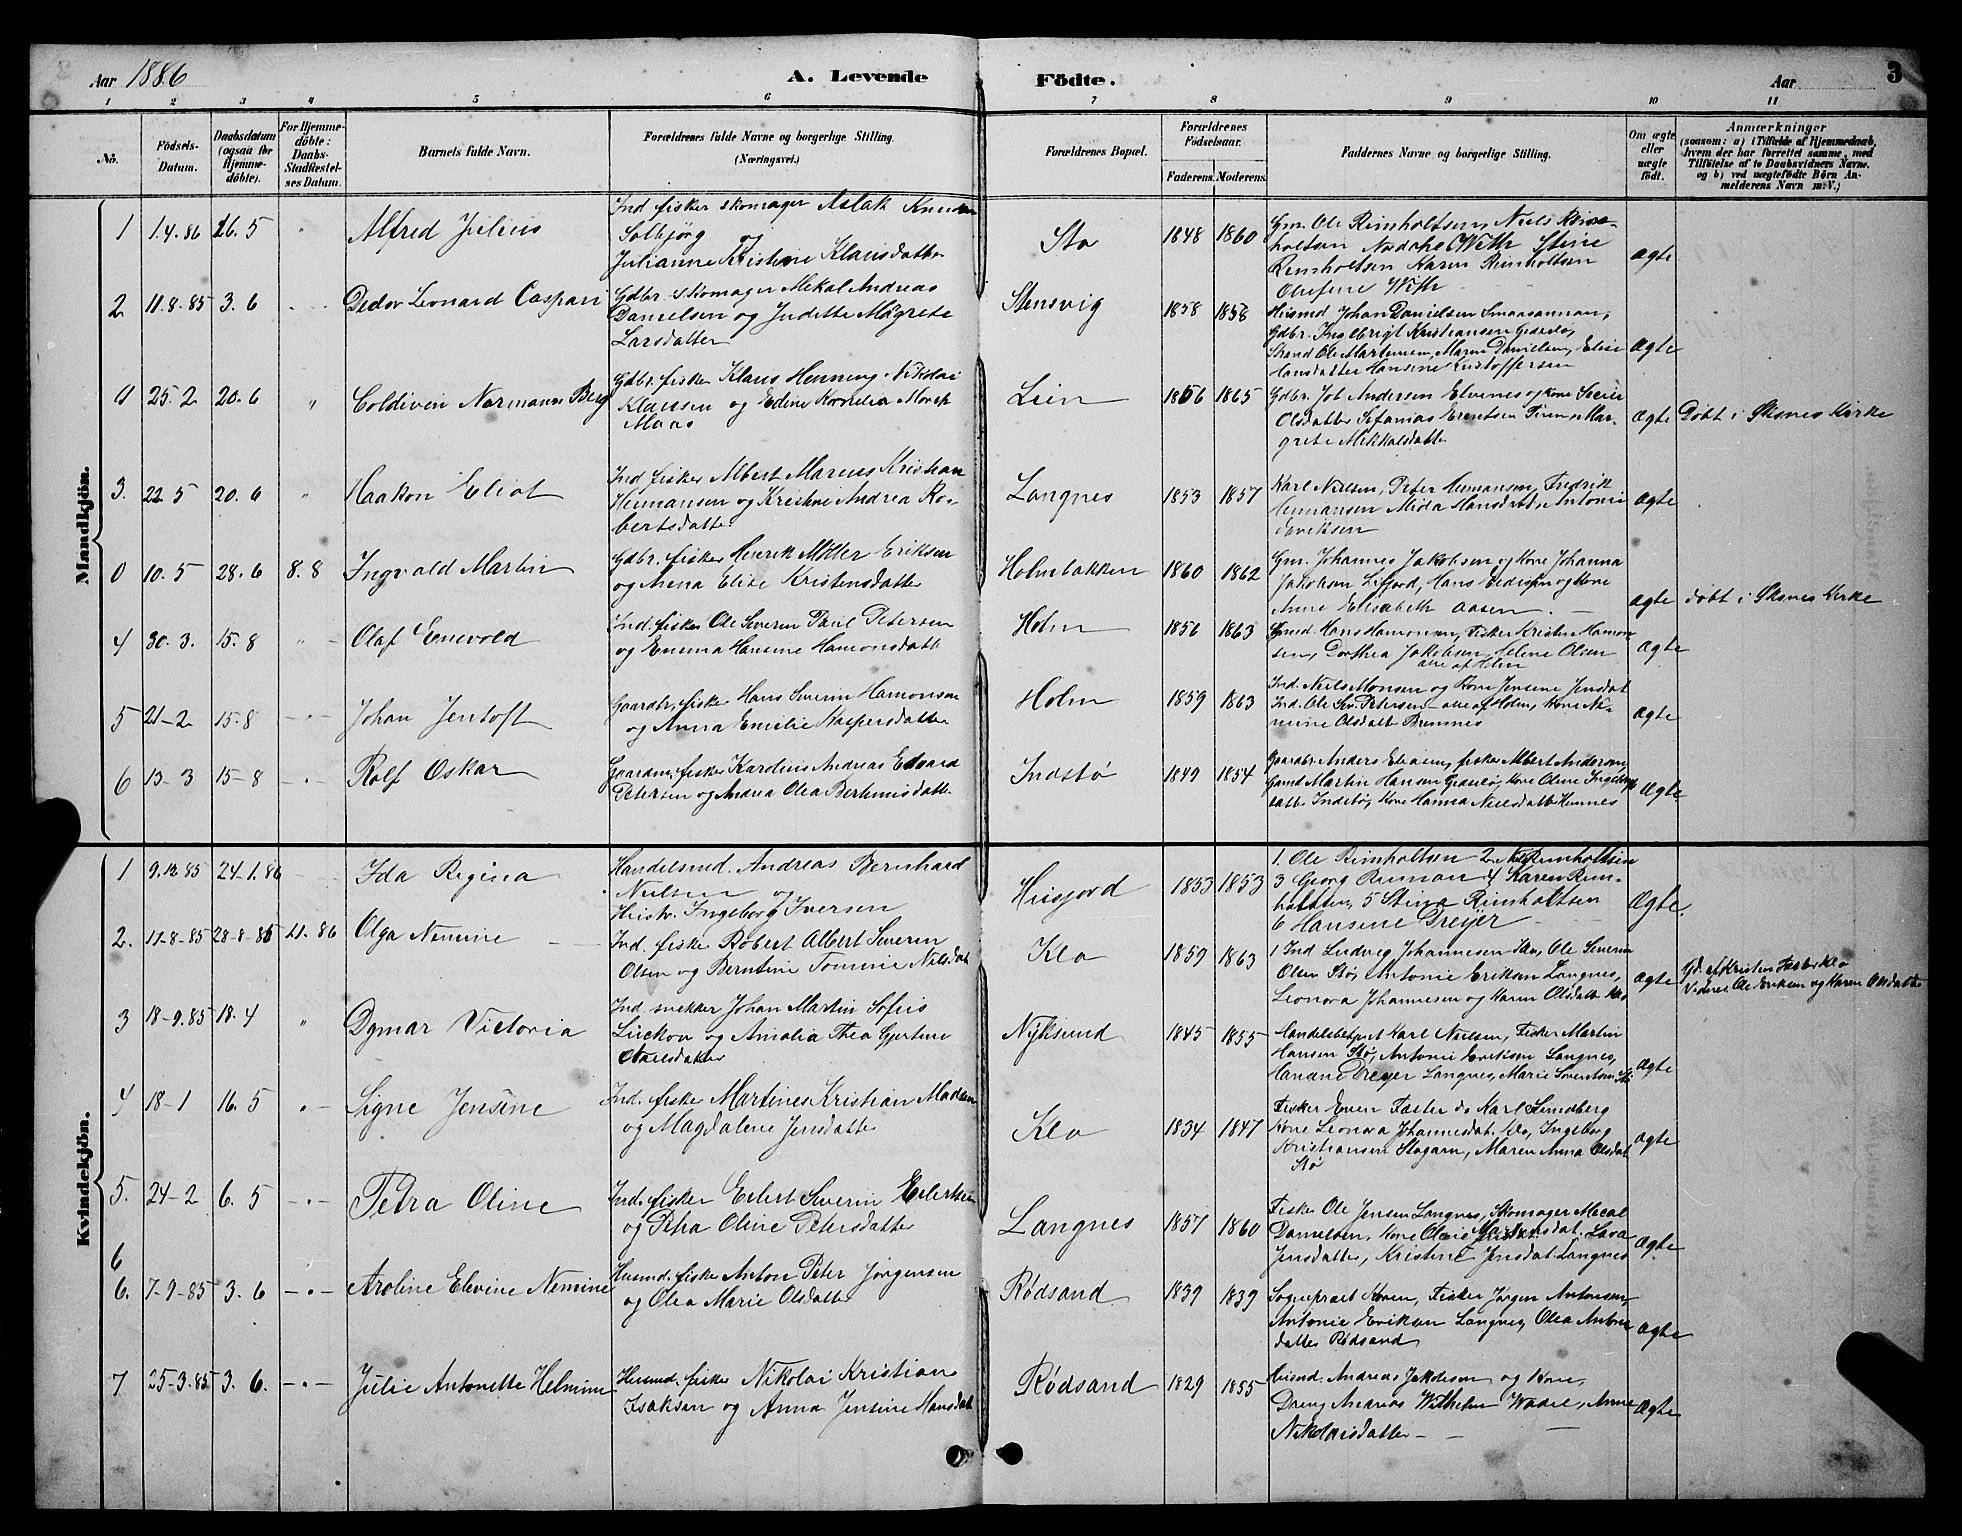 Aar 1886
A. Levende Födte.
Aar
3
1 2 3 4 5 6 7 8 9 10 11
No.
Födsels-Datum.
Daabsdatum (ogsaa for Hjemme-döbte).
For Hjemme-döbte: Daabs-Stadfæstel-ses Datum.
Barnets fulde Navn.
Forældrenes fulde Navne og borgerlige Stilling.
(Næringsvei.)
Forældrenes Bopæl.
Forældrenes Födselsaar.
Faderens. Moderens.
Faddernes Navne og borgerlige Stilling.
Om ægte eller uægte födt.
Anmærkninger
(saasom: a) i Tilfælde af Hjemmedaab, hvem der har forrettet samme, med Tilföielse af to Daabsvidners Navne. og b) ved uægtefödte Börn Anmelderens Navn m. V.)
Mandkjön.
1 1.4.86 26.5 " Alfred Julius
Ind fisker skomager Aslak Knudsen
Solbjørg og
Julianne Kristine Klausdatter
Stø 1848 1860
Gm. Ole Reinholtsen, Niels Rein-
holtsen With Stine
Reinholtsen Karen Reinholtsen
Olufine With
Ægte
2 11.8.85 3.6 Dedov Leonard Caspari
Gdbr. skomager Mekal Andreas
Danielsen og Judette Magrete
Larsdatter
Stensvig 1858 1858
Husmd Johan Danielsen Smaasannan,
Gdbr. Ingelbrigt Kristiansen
Strand Ole Martinsen, Maren Danielsen, Elise
Hansdatter Hansine Kristoffersen
Ægte
0 25.2 20.6 " Coldiven Normann Berg
Gdbr. fisker Klaus Henning Nikolai
Klausen og Edine Kornelia
Maas
Lien 1856 1865
Gdbr. Job Andersen Elvenes og kone
Olsdatter Sefanias Erentsen Mar-
grete Mekkalsdatter
Ægte Døbt i Øksnes Kirke
3. 22.5 20.6 " Haakon Eliot
Ind fisker Albert Marius Kristian
Hermansen og Kristine Andrea Ro-
bertsdatter
Langnes 1853 1857
Karl Nielsen, Peter Hermansen, Fredrik
Hermansen Mida Hansdatt, Antonie
Eriksen
Ægte
0 10.5 28.6 8.8 Ingvald Martin
Gdbr. fisker Henrik Møller Eriksen
og Anna Elise Kristensdatter
Holmbakken 1860 1862
Gm. Johannes Jakobsen og Kone Johanna
Jakobsen Lifjord, Hans og Kone
Anne Elisabeth Aasen
Ægte døbt i Øksnes Kirke
4 30.3. 15.8 " Olaf Enevold
Ind. fisker Ole Severin Paul Petersen
og Emma Hansine Hamonsdatt
Holm 1856 1863
Hans Hamonsen, Fisker Kristen Hamon-
sen, Dorthea Jakobsen, Helene Olsen
alle af Holm
Ægte
5 21-2 15-8 Johan Jentoft
Gaardbr. fisker Hans Severin Hamonsen
og Anna Emelie Kaspersdatter
Holm 1859 1863
Ind. Niels Monsen og Kone Jensine Jensdat
Ind. Ole Sev. Petersen alle af Holm, Kone Ni-
mine Olsdatt Bremnes
Ægte
6 13-3 15-8 Rolf Oskar
Gaardm. fisker Karolius Andreas Edvard
Petersen og Andrea Olea Bertinusdatter
Indstø 1849 1854
Gaardbr. Anders fisker Albert Andersen
Gaard Martin Hansen Gisløy, Kone Oline Ingebrigts
datter Indstø, Kone Hanna Nielsdatter
Ægte
Kvindekjön.
1 9.12.85 24-1.86 Ida Regina
Handelsmd. Andreas Bernhard
Nielsen og
Hustr. Ingeborg Iversen
Husfjord 1853 1853
1. Ole Reinholtsen 2 Reinholtsen
3 Georg Ruman 4 Karen Rein-
holtsen, 5 Stina Reinholtsen
6 Hansine Dreyer
Ægte.
2. 11-8-85 28-8-85 11.86 Olga Nimine
Ind. fisker Robert Albert Severin
Olsen og Berntine Tomine Nilsdat
Klo 1859 1863
1 Ind Ludvig Johannesen Ole Severin
Olsen Stø, Antonie Eriksen Langnes,
Leonora Johannesen og Karen Olsdatt Klo
Ægte
Gd. af Kristen Klo
Vidnes. Ole Eriksen og Karen Olsdatter
3 18-9.85 18.4 " Dgmar Victoria
Ind snekker Johan Martin Sofus
Lückow og Amalia Thea Gjertine
Nyksund 1845 1855
Handelsbetjent Karl Nielsen, Fisker Martin
Hansen Stø, Antonie Eriksen Langnes,
Hanane Dreyer Langnes, Marie
Ægte
4 18-1 16.5 Signe Jensine
Ind. fisker Martines Kristian Madsen
og Magdalene Jensdatter
Klo 1834 1847
Fisker Even do Karl Sundberg
Kone Leonora Johannesdat. Klo, Ingeborg
Kristiansen Skogarn, Maren Anna Olsdat
Stø
Ægte
5. 24-2 6.5 Petra Oline
Ind. fisker Eilert Severin Eilertsen
og Petra Oline Petersdatter
Langnes 1857 1860
Fisker Ole Jensen Langnes, Skomager Mecal
Danielsen, Kone Olsdat. Lava
Jensdatter, Kristine Jensdat. Langnes
Ægte
6
6. 7-9-85 3.6 Aroline Elevine Nemine
Husmd. fisker Anton Peter Jørgensen
og Olea Marie Olsdatter
Rødsand 1839 1839
Sogneprest Koren, Fisker Jørgen Antonsen,
Antonie Eriksen Langnes, Olea Antons
datter Rødsand
Ægte
7 25-3.85 3.6. Julie Antonette Helmine
Husmd. fisker Nikolai Kristian
Isaksen og Anna Jensine Hansdat
Rødsand 1829 1855
Husmd. Andreas Jakobsen og Kone,
Dreng Andreas Wilhelm Wadel, Anne
Nikolaisdatter
Ægte